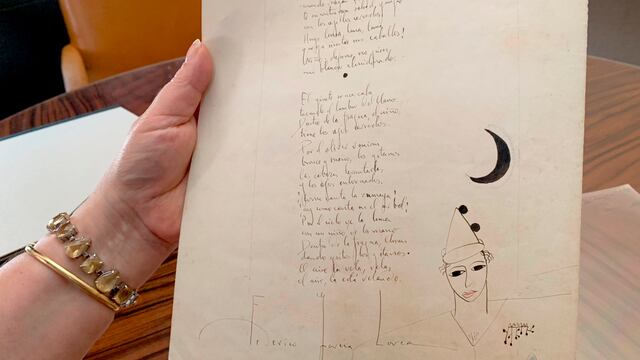 con los ojillos cerrados.
Huye luna, luna, luna,
que ya siento sus caballos!
mi blancor almidonado.
El jinete se acercaba
tocando el tambor del llano.
Dentro de la fragua, el niño,
tiene los ojos cerrados.
Por el olivar venían,
bronce y sueño, los gitanos.
Las cabezas levantadas
y los ojos entornados.
¡Cómo canta la zumaya!
¡ay como canta en el arbol!
Por el cielo va la luna
con un niño de la mano.
Dentro de la fragua, lloran
dando gritos, los gitanos.
El aire la vela, vela,
el aire, la está velando.
Federico García Lorca